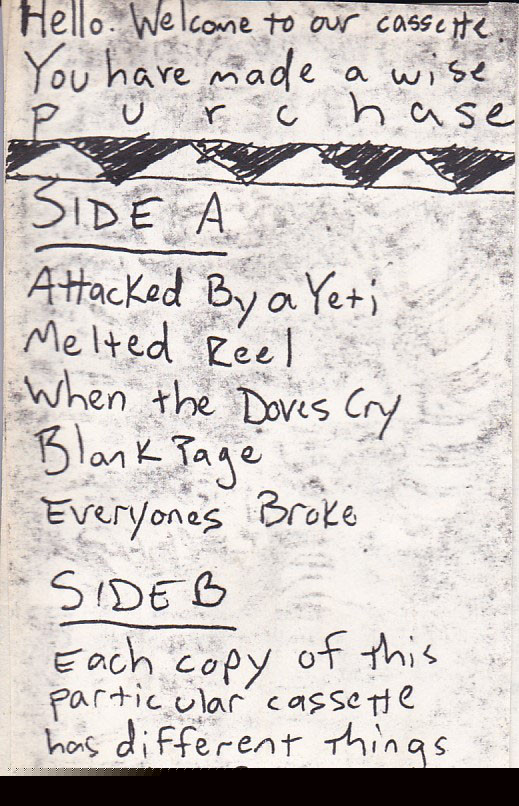 Hello. Welcome to our cassette.
You have made a wise
purchase
SIDE A
Attacked By a Yeti
Melted Reel
When the Doves Cry
Blank Page
Everyones Broke
SIDE B
Each copy of this
particular cassette
has different things